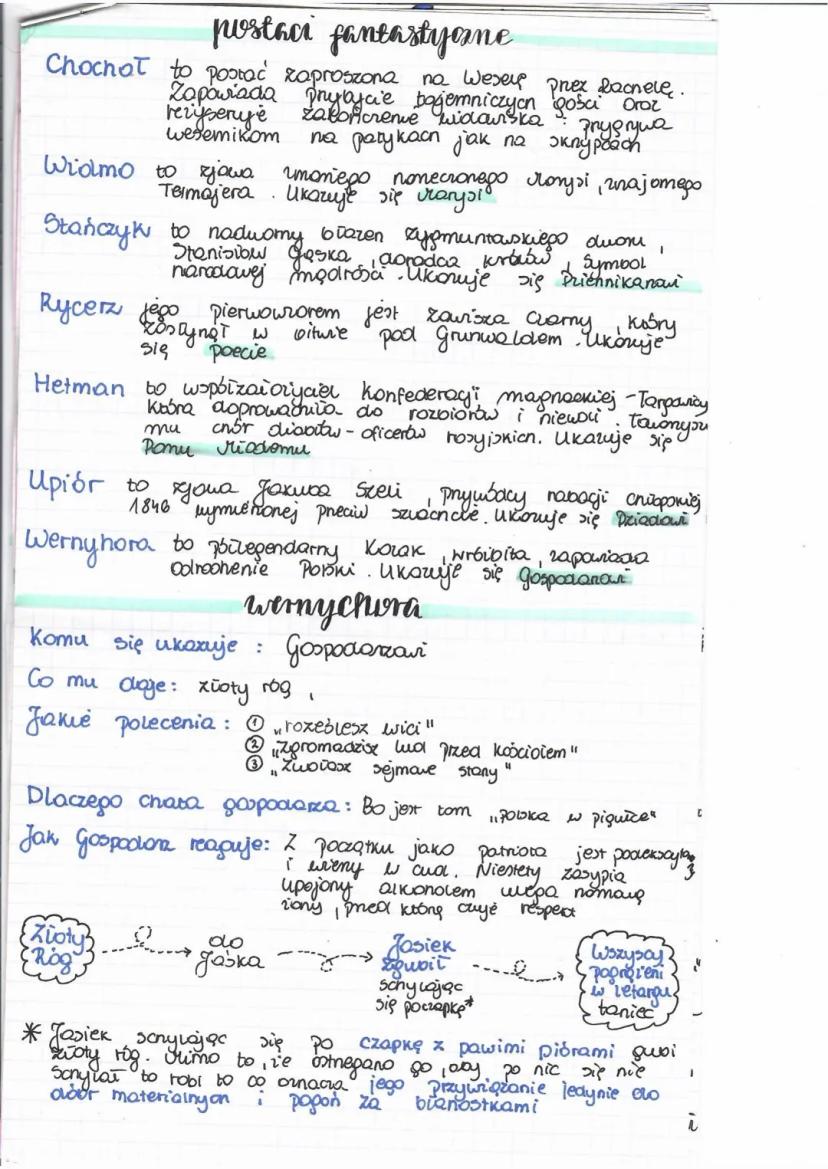 postaci fantastyczne
Chochoł to postać zaproszona na Wesele przez Rachelę.
Zapowiada przybycie tajemniczych gości oraz
reżyseruje zakończenie widowiska : przygrywa
weselnikom na patykach jak na skrzypcach
Widmo to zjawa zmarłego narzeczonego Marysi, znajomego
Tetmajera. Ukazuje się Marysi
Stańczyk to nadworny błazen zygmuntowskiego dworu,
Stanisław Gąska, doradca królów, symbol
narodowej mądrości. Ukazuje się Dziennikarowi
Rycerz jego pierwowzorem jest Zawisza Czarny, który
zasłynął w bitwie pod Grunwaldem. Ukazuje
się poecie
Hetman to współzałożyciel Konfederacji magnackiej - Targowicy
która doprowadziła do rozbiorów i niewoli. Towarzyszy
mu chór diabłów - oficerów rosyjskich. Ukazuje się
Panu Młodemu
Upiór to zjawa Jakuba Szeli, przywódcy rabacji chłopskiej
1846 wymierzonej przeciw szlachcie. Ukazuje się Dziadowi
Wernyhora to półlegendarny Kozak, wróżbita, zapowiada
odrodzenie Polski. Ukazuje się Gospodarzowi
wernychora
Komu się ukazuje : Gospodarzowi
Co mu daje: złoty róg,
Jakie polecenia : ① „roześlesz wici"
② „Zgromadzisz lud przed kościołem"
③ „Zwołasz sejmowe stany"
Dlaczego chata gospodarza: Bo jest tam „Polska w pigułce"
Jak Gospodarz reaguje: Z początku jako patriota jest podekscyto
i wierzy w cud. Niestety zasypia
upojony alkoholem ulega namowę
żony, przed którą czuje respekt
Złoty
Róg
do
Jaśka
Jasiek
zgubił
schylając
się po czapkę*
Wszyscy
pogrążeni
w letargu
taniec
* Jasiek schylając się po czapkę z pawimi piórami gubi
złoty róg. Mimo to, że ostrzegano go, aby po nic się nie
schylał to robi to co oznacza jego przywiązanie jedynie do
dóbr materialnych i pogoń za błahostkami